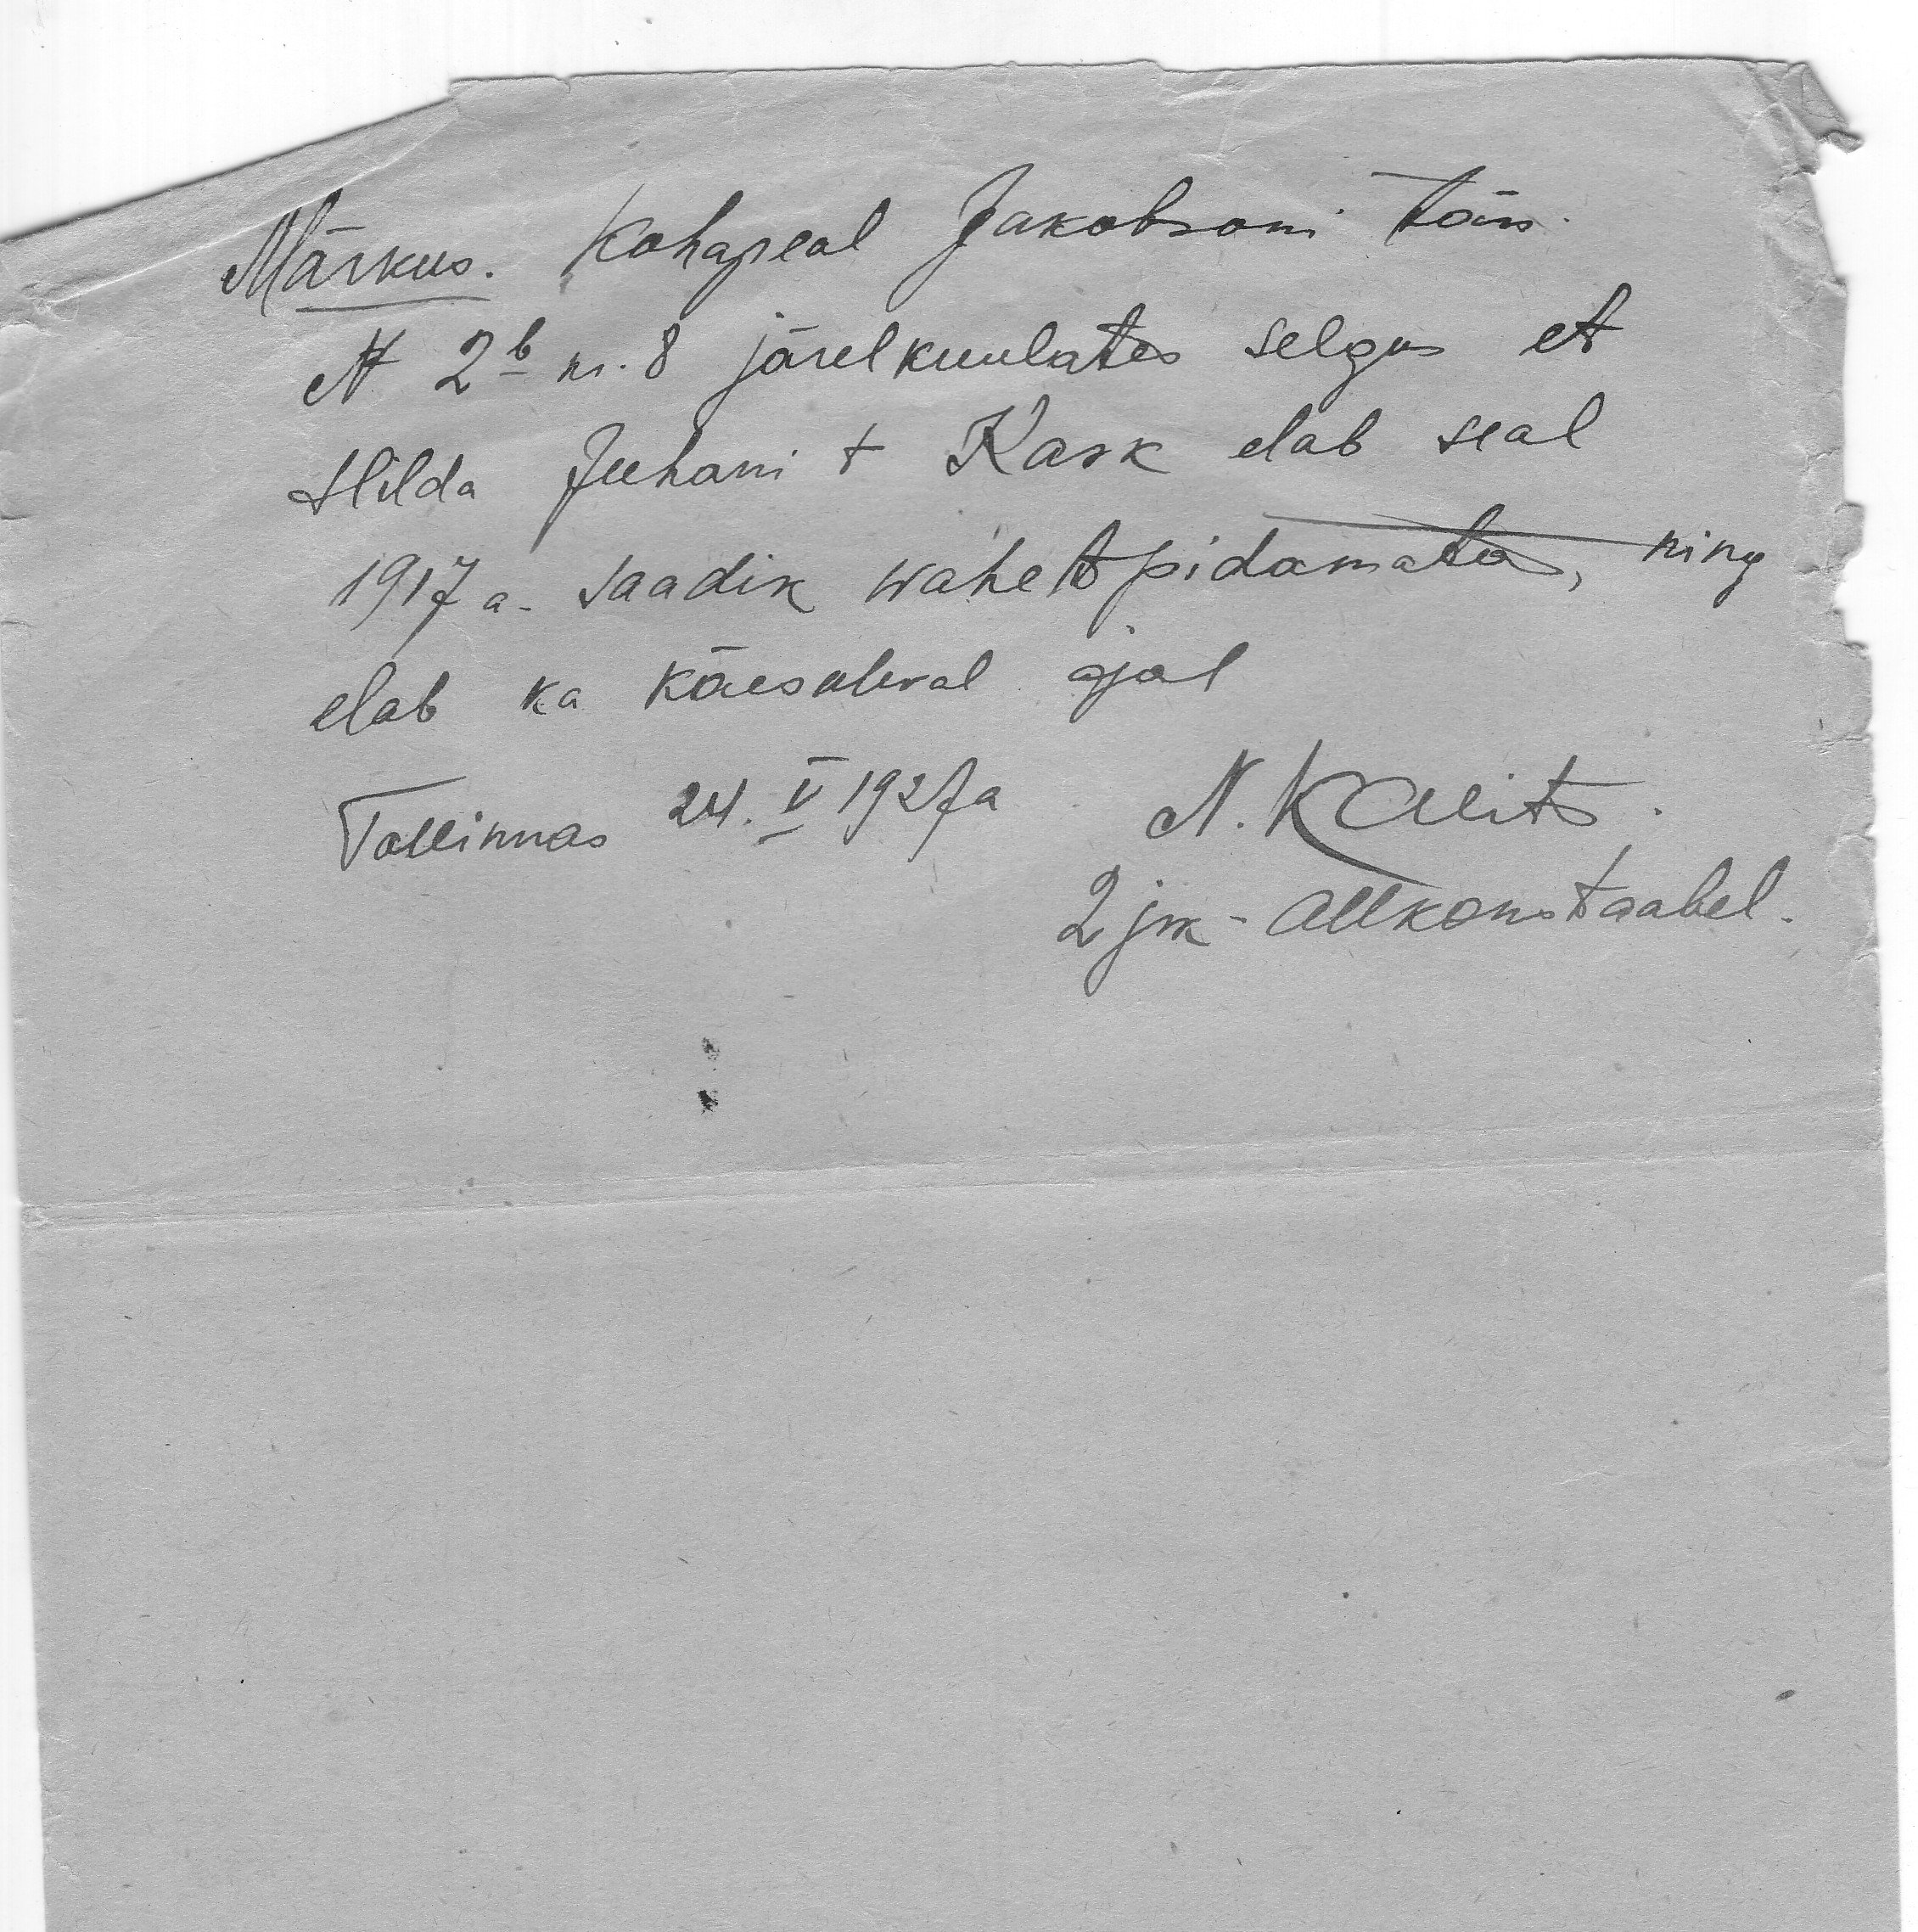 Märkus. Kohapeal Jakobsoni tän.
N 2b kr. 8 järelkuulates selgus et
Hilda Juhani t Kask elab seal
1917 a. saadik wahetpidamata, ning
elab ka käesoleval ajal
Tallinnas 24. V 1927 a N. Kallits.
2 jrk - Allkonstaabel.